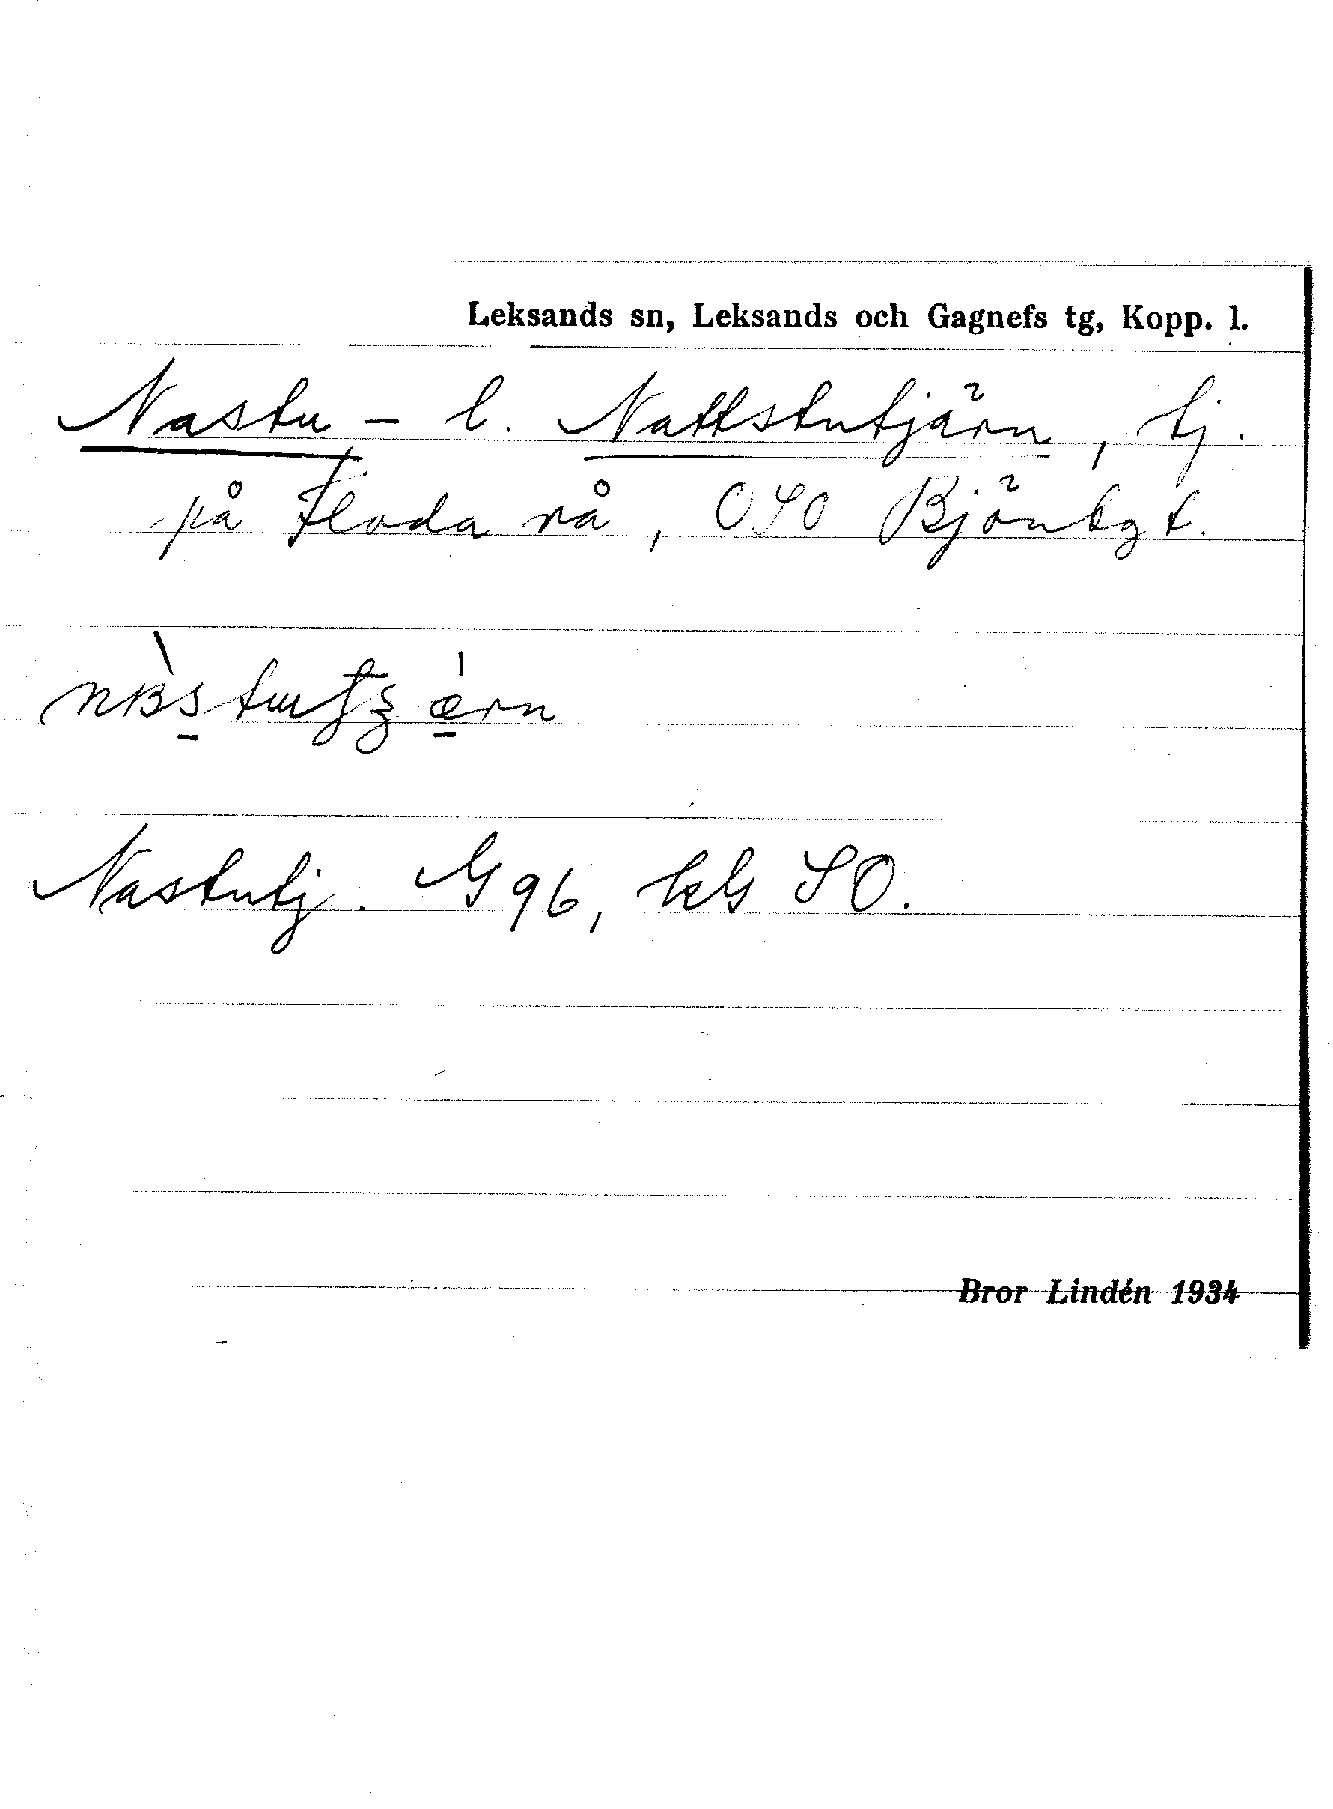 Leksands sn, Leksands och Gagnefs tg, Kopp. l.
Nastu - l. Nattstutjärn, tj.
på Floda rå, OSO Björnbgt.
Nastutj. G 96, SO.
Bror Lindén 1934